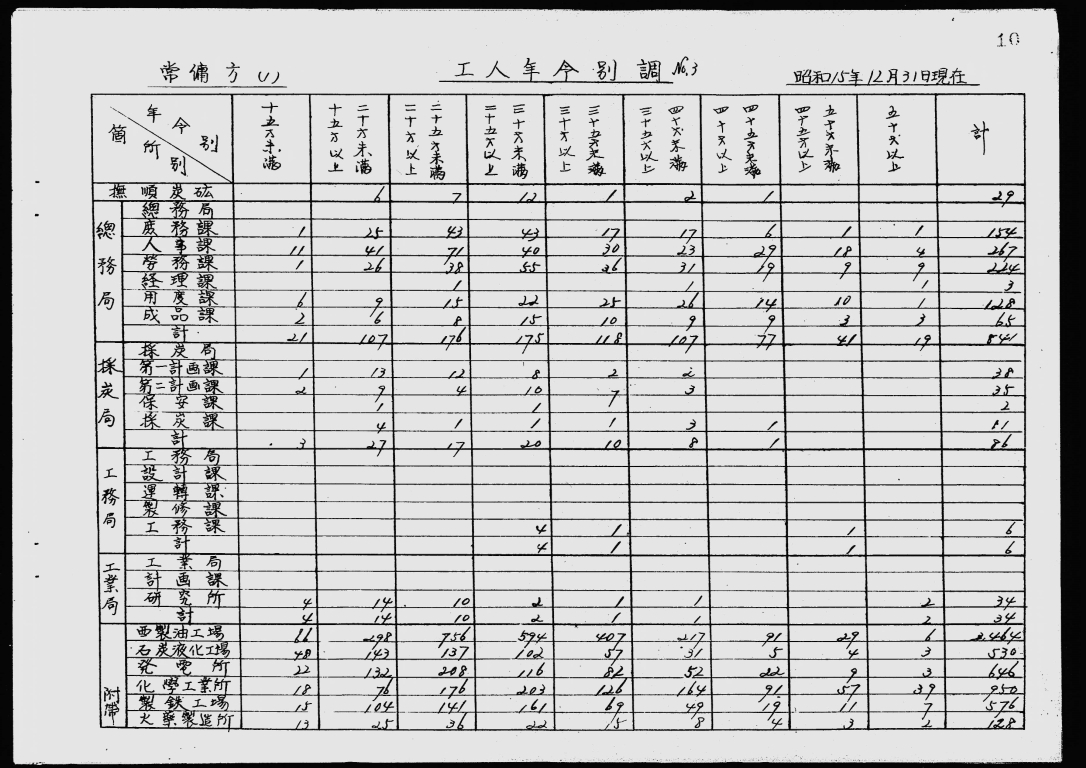 10
常傭方(1) 工人年令別調 No.3 昭和15年12月31日現在
年令別 箇所別 十五才未満 十五才以上二十才未満 二十才以上二十五才未満 二十五才以上三十才未満 三十才以上三十五才未満 三十五才以上四十才未満 四十才以上四十五才未満 四十五才以上五十才未満 五十才以上 計
撫順炭砿 6 7 12 1 2 1 29
總務局
總務局
庶務課 1 25 43 43 17 17 6 1 1 154
人事課 11 41 71 40 30 23 29 18 4 267
労務課 1 26 38 55 36 31 19 9 9 224
経理課 1 1 1 3
用度課 6 9 15 22 25 26 14 10 1 128
成品課 2 6 8 15 10 9 9 3 3 65
計 21 107 176 175 118 107 77 41 19 841
採炭局
採炭局
第一計画課 1 13 12 8 2 2 38
第二計画課 2 9 4 10 7 3 35
保安課 1 1 2
採炭課 4 1 1 1 3 1 11
計 3 27 17 20 10 8 1 86
工務局
工務局
設計課
運轉課
製修課
工務課 4 1 1 6
計 4 1 1 6
工業局
工業局
計画課
研究所 4 14 10 2 1 1 2 34
計 4 14 10 2 1 1 2 34
附帯
西製油工場 66 298 756 594 407 217 91 29 6 2,464
石炭液化工場 48 143 137 102 57 31 5 4 3 530
発電所 22 132 208 116 82 52 22 9 3 646
化學工業所 18 76 176 203 126 164 91 57 39 950
製鉄工場 15 104 141 161 69 49 19 11 7 576
火薬製造所 13 25 36 22 15 8 4 3 2 128